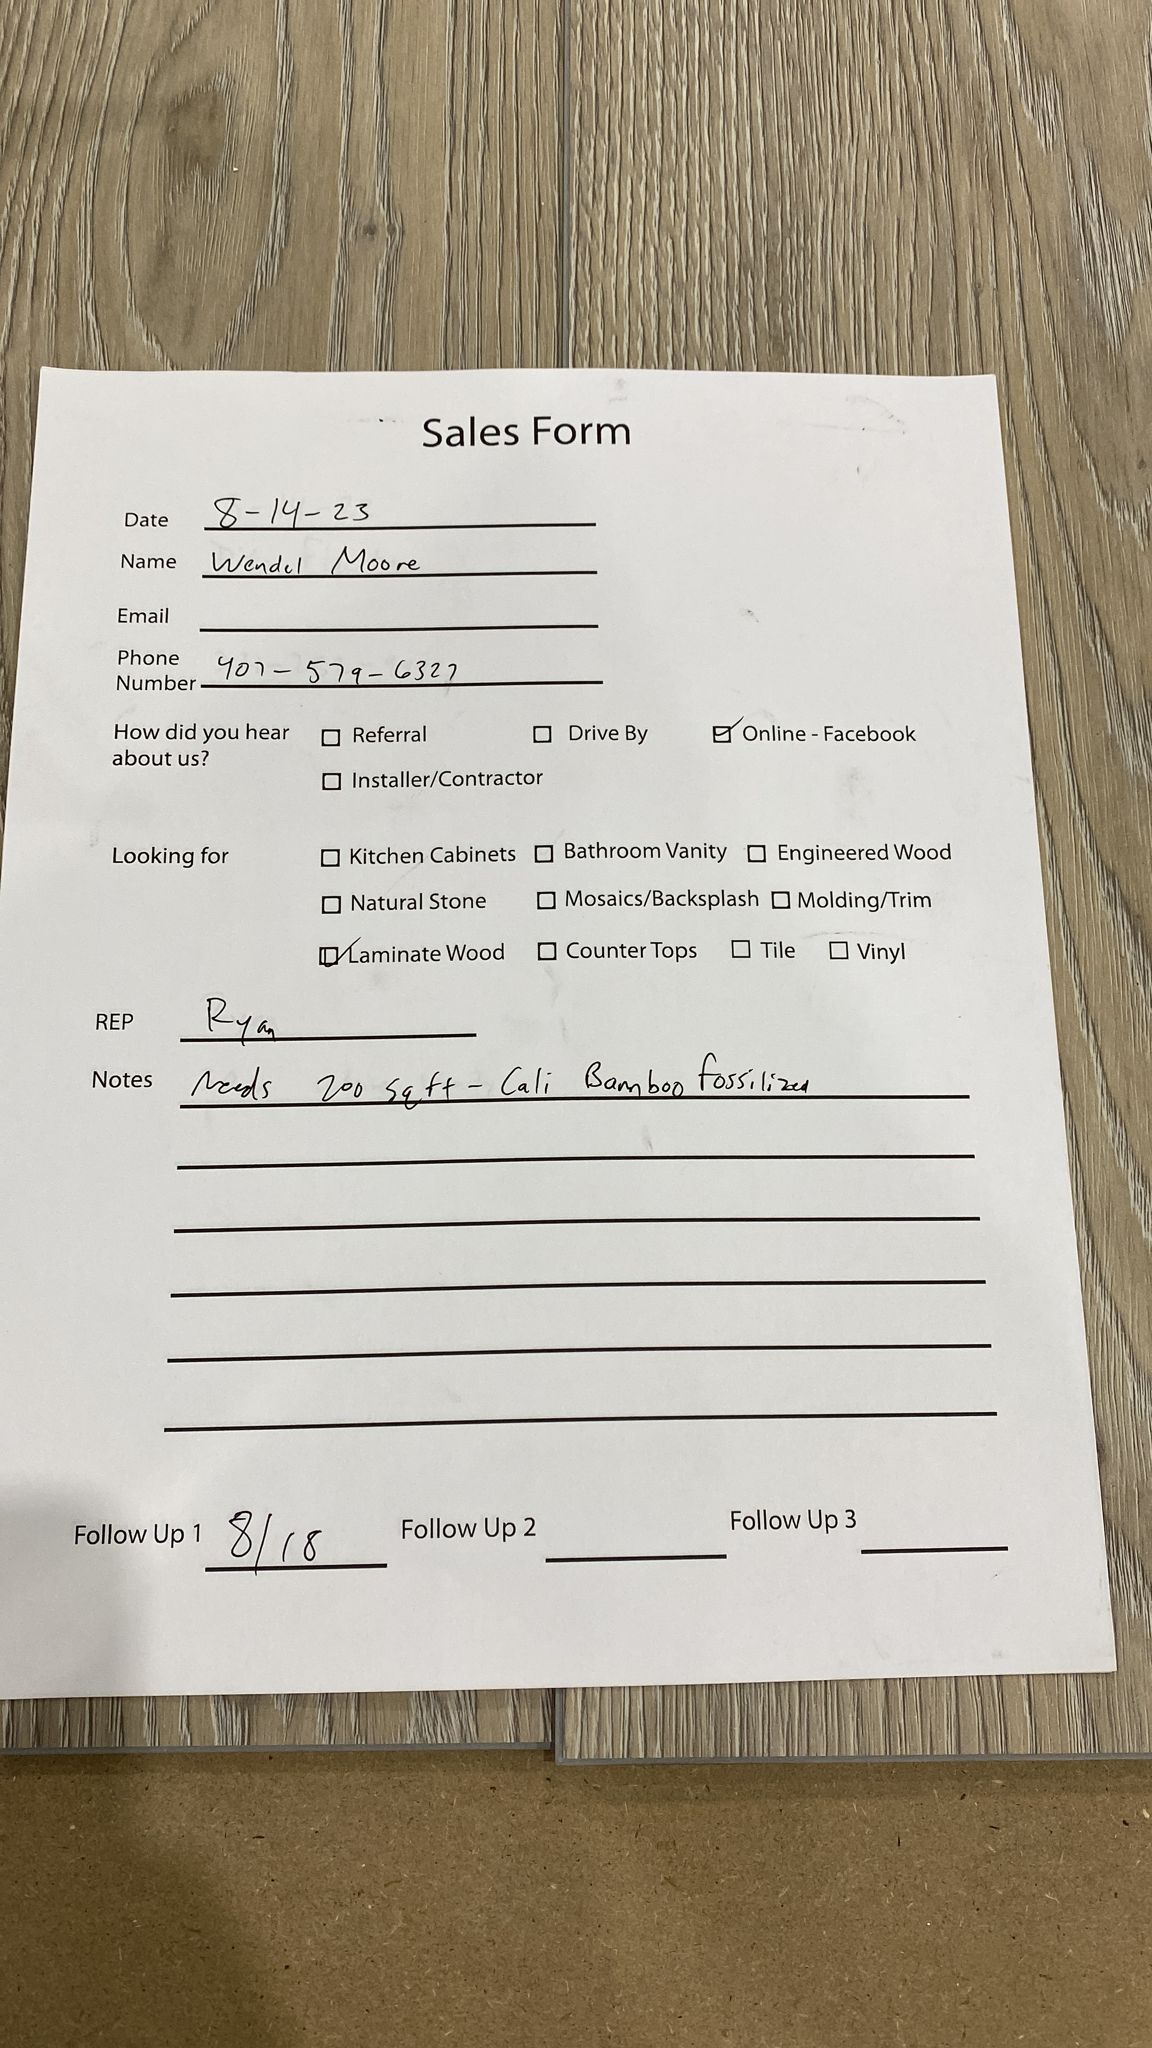 Sales Form
Date 8-14-23
Name Wendel Moore
Email
Phone
Number 407-579-6327
How did you hear ☐ Referral ☐ Drive By ☑ Online - Facebook
about us? ☐ Installer/Contractor
Looking for ☐ Kitchen Cabinets ☐ Bathroom Vanity ☐ Engineered Wood
☐ Natural Stone ☐ Mosaics/Backsplash ☐ Molding/Trim
☑ Laminate Wood ☐ Counter Tops ☐ Tile ☐ Vinyl
REP Ryan
Notes Needs 200 sqft - Cali Bamboo fossilized
Follow Up 1 8/18 Follow Up 2 Follow Up 3